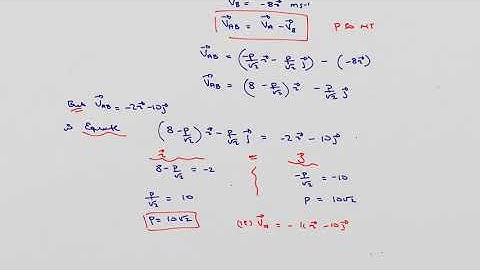 V⃗B = -8i⃗ ms⁻¹
V⃗AB = V⃗A - V⃗B
V⃗AB = (-P/√2 i⃗ - P/√2 j⃗) - (-8i⃗)
V⃗AB = (8 - P/√2) i⃗ - P/√2 j⃗
But V⃗AB = -2i⃗ - 10j⃗
Equate (8 - P/√2) i⃗ - P/√2 j⃗ = -2i⃗ - 10j⃗
i = j
8 - P/√2 = -2
-P/√2 = -10
P/√2 = 10
P = 10√2
P = 10√2
V⃗A = - 10j⃗